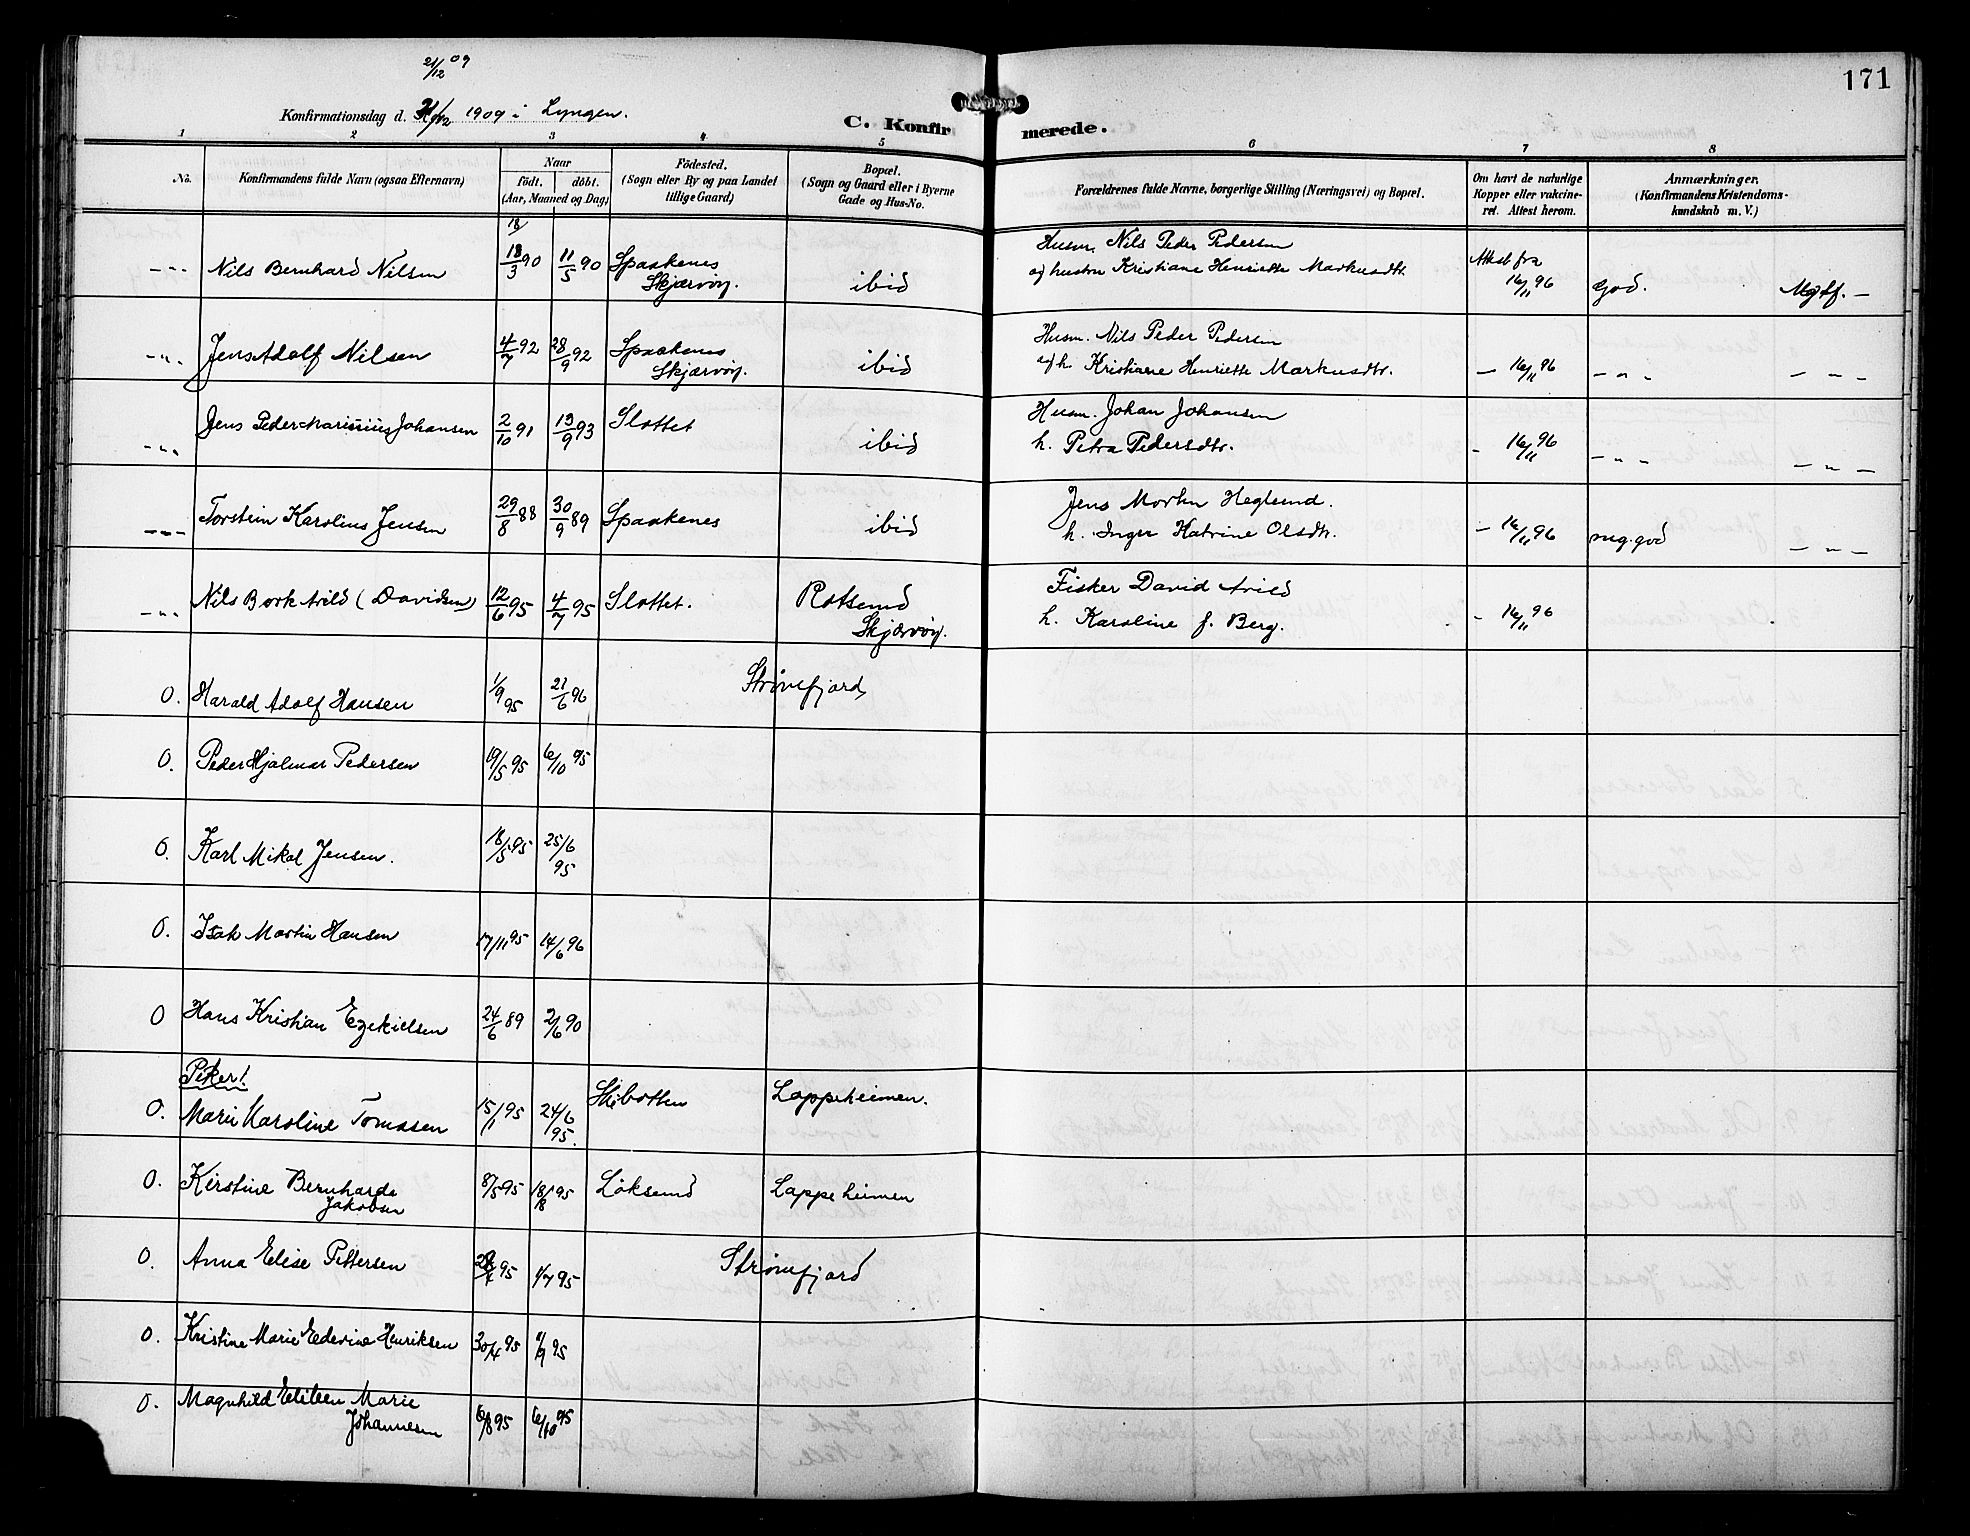 171
21/12 09
Konfirmationsdag d. 21/12 1909 i Lyngen.
C. Konfirmerede.
1 2 3 4 5 6 7 8
No.
Konfirmandens fulde Navn (ogsaa Efternavn)
Naar
födt. döbt.
(Aar, Maaned og Dag)
Födested.
(Sogn eller By og paa Landet
tillige Gaard)
Bopæl.
(Sogn og Gaard eller i Byerne
Gade og Hus-No.
Forældrenes fulde Navne, borgerlige Stilling (Næringsvei) og Bopæl.
Om havt de naturlige
Kopper eller vakcine-
ret. Attest herom.
Anmærkninger.
(Konfirmandens Kristendoms-
kundskab m. V.)
18/
-"- Nils Bernhard Nilsen 18/3 90 11/5 90 Spaakenes
Skjærvöy. ibid
Husm. Nils Peder Pedersen
og hustru Kristiane Henriette Markusdtr.
Attest fra
16/11 96 god.
-"- Jens Adolf Nilsen 4/7 92 28/9 92 Spaakenes
Skjærvöy. ibid
Husm. Nils Peder Pedersen
og h. Kristiane Henriette Markusdtr. - 16/11 96 - " - - " -
-"- Jens Peder Marinius Johansen 2/10 91 13/9 93 Slottet ibid
Husm. Johan Johansen
h. Petra Pedersdtr. - 16/11 96 - " - - " -
-"- Torstein Karolius Jensen 29/8 88 30/9 89 Spaakenes ibid
Jens Morten Heglund.
h. Inger Katrine Olsdtr. - 16/11 96 meg. god - " -
-"- Nils Bork Arild (Davidsen) 12/6 95 4/7 95 Slottet. Rotsund
Skjærvöy.
Fisker David Arild
h. Karoline f. Berg. - 16/11 96
O. Harald Adolf Hansen 1/9 95 21/6 96 Strövefjord
O. Peder Hjalmar Pedersen 19/5 95 6/10 95
O. Karl Mikal Jensen. 18/5 95 25/6
95
O. Isak Martin Hansen 17/11 95 14/6 96
O Hans Kristian Ezekielsen 24/6 89 2/6 90
Piker!
O. Marie Karoline Tomasen 15/1 95 24/6
95. Skibotten Lappeheimen.
O. Kirstine Bernharda
Jakobsen 8/5 95 18/8 95 Löksund Lappeheimen
O. Anna Elise Pettersen 95 1/7 95 Strövefjord
O. Kristine Marie Edevine Henriksen 30/4 95 95
O. Magnhild Marie
Johannesen 6/8 95 6/10 95